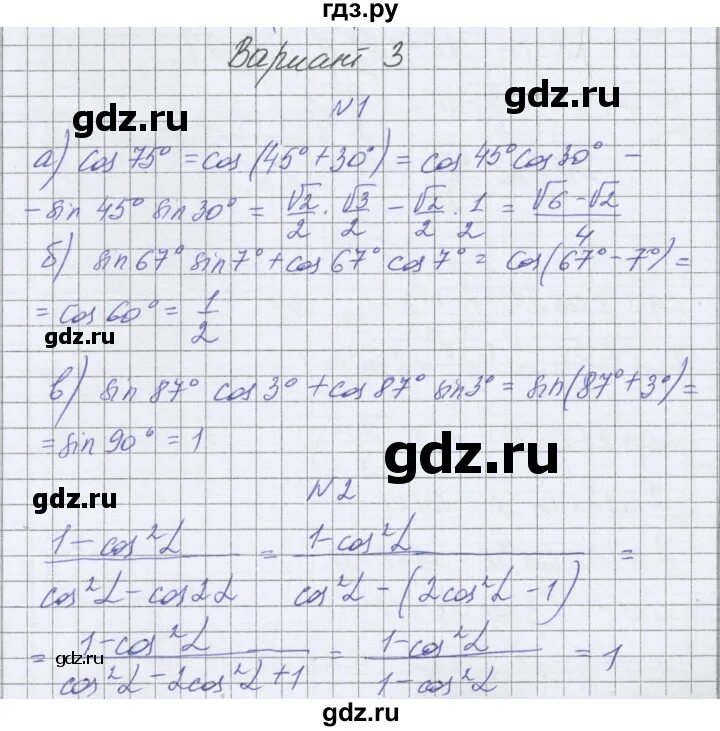 гдз.ру
Вариант 3
gdz.ru
gdz.ru
N1
а) cos 75° = cos (45° + 30°) = cos 45° cos 30° -
- sin 45° sin 30° = √2/2 · √3/2 - √2/2 · 1/2 = (√6 - √2)/4
б) sin 67° sin 7° + cos 67° cos 7° = cos (67° - 7°) =
= cos 60° = 1/2
gdz.ru
gdz.ru
в) sin 87° cos 3° + cos 87° sin 3° = sin (87° + 3°) =
= sin 90° = 1
gdz.ru
gdz.ru
N2
(1 - cos²α)/(cos²α - cos2α) = (1 - cos²α)/(cos²α - (2cos²α - 1)) =
= (1 - cos²α)/(cos²α - 2cos²α + 1) = (1 - cos²α)/(1 - cos²α) = 1
gdz.ru
gdz.ru
gdz.ru